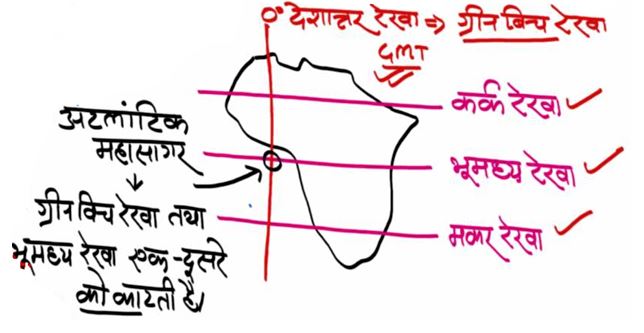 0° देशान्तर रेखा ⇒ ग्रीनविच रेखा
GMT
कर्क रेखा
अटलांटिक
महासागर
भूमध्य रेखा
ग्रीनविच रेखा तथा
भूमध्य रेखा एक-दूसरे
को काटती है।
मकर रेखा